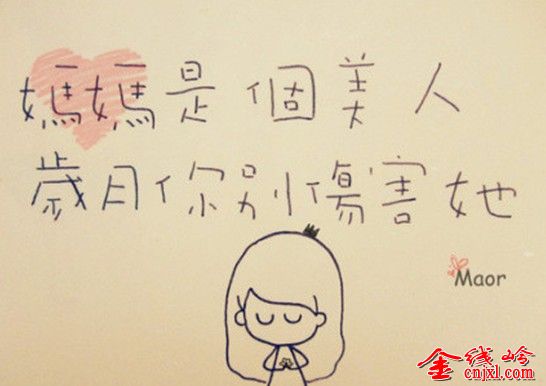 媽媽是個美人
歲月你別傷害她
Maor
金线岭
cnjxl.com